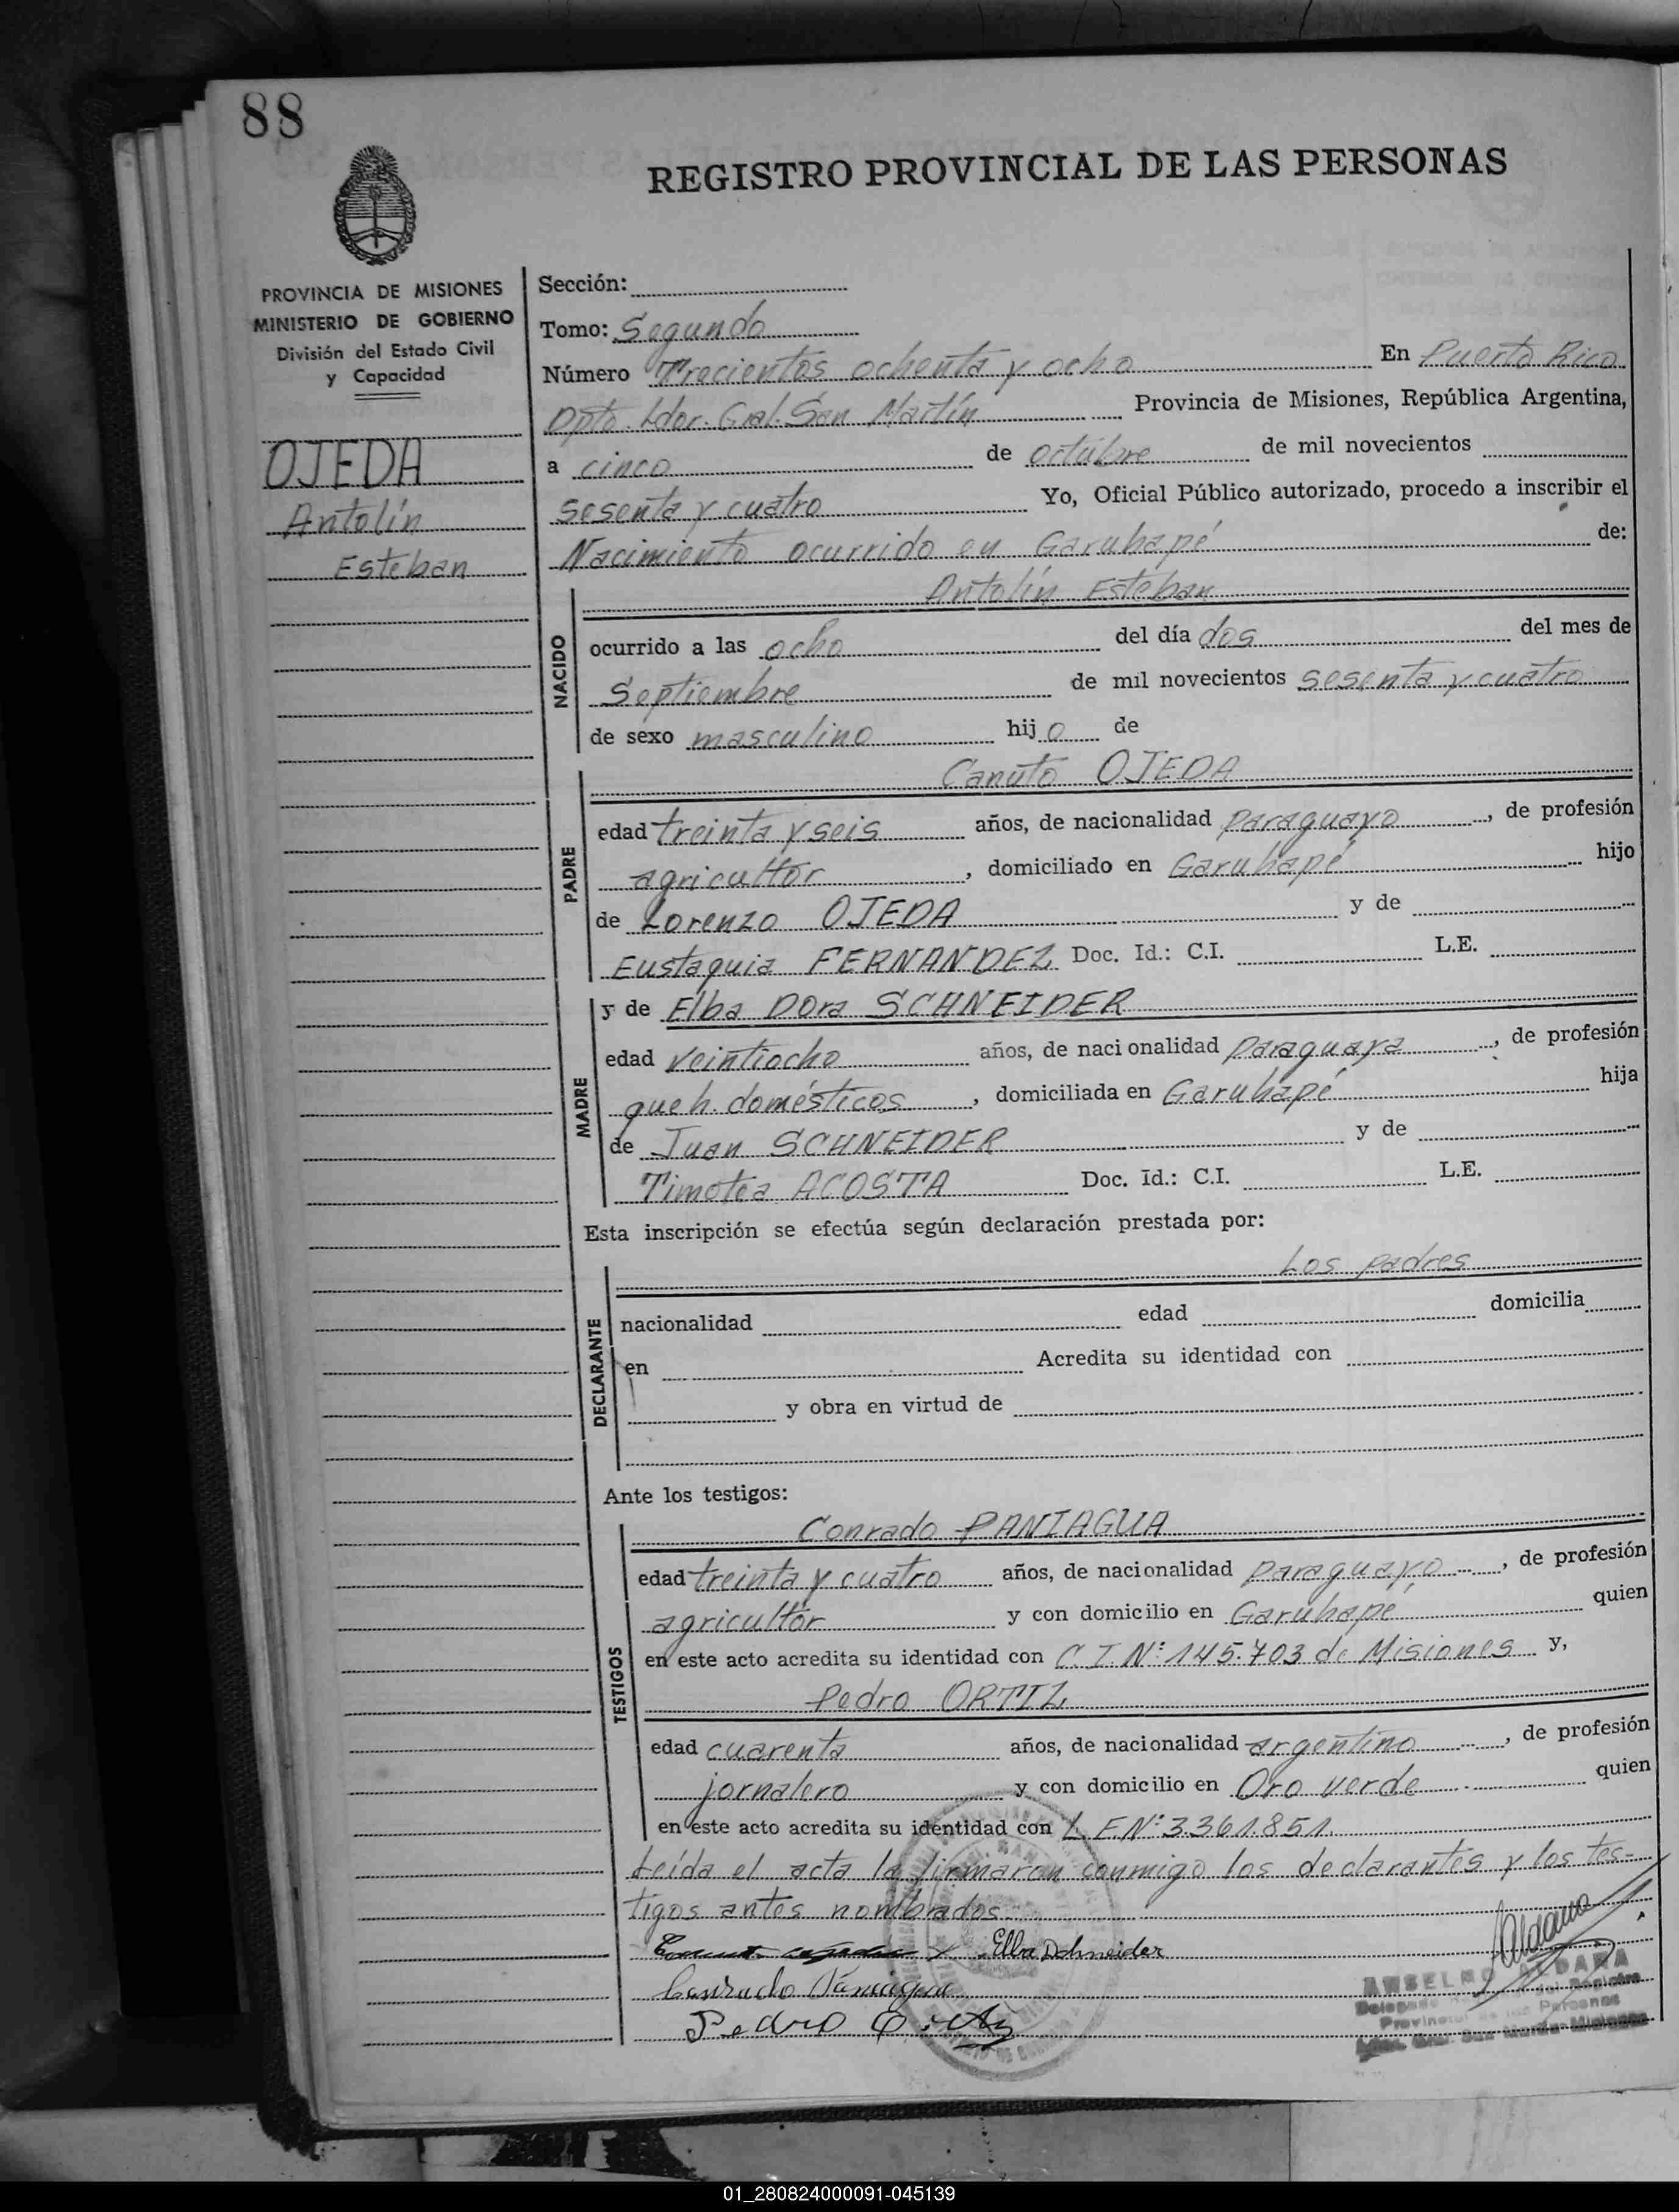 88
REGISTRO PROVINCIAL DE LAS PERSONAS
PROVINCIA DE MISIONES
MINISTERIO DE GOBIERNO
División del Estado Civil
y Capacidad
OJEDA
Antolín
Esteban
Sección:
Tomo: Segundo
Número Trecientos ochenta y ocho En Puerto Rico
Dpto. Ldor. Gral. San Martín Provincia de Misiones, República Argentina,
a cinco de octubre de mil novecientos
sesenta y cuatro Yo, Oficial Público autorizado, procedo a inscribir el
Nacimiento ocurrido en Garuhapé de:
NACIDO
Antolín Esteban
ocurrido a las ocho del día dos del mes de
Septiembre de mil novecientos sesenta y cuatro
de sexo masculino hijo de
PADRE
Canuto OJEDA
edad treinta y seis años, de nacionalidad paraguayo, de profesión
agricultor, domiciliado en Garuhapé hijo
de Lorenzo OJEDA y de
Eustaquia FERNANDEZ Doc. Id.: C.I. L.E.
MADRE
y de Elba Dora SCHNEIDER
edad veintiocho años, de naci onalidad paraguaya, de profesión
queh. domésticos, domiciliada en Garuhapé hija
de Juan SCHNEIDER y de
Timotea ACOSTA Doc. Id.: C.I. L.E.
Esta inscripción se efectúa según declaración prestada por:
DECLARANTE
Los padres
nacionalidad edad domicilia
en Acredita su identidad con
y obra en virtud de
Ante los testigos:
TESTIGOS
Conrado PANIAGUA
edad treinta y cuatro años, de nacionalidad paraguayo, de profesión
agricultor y con domicilio en Garuhapé quien
en este acto acredita su identidad con C.I. Nº: 145.703 de Misiones y,
Pedro ORTIZ
edad cuarenta años, de nacionalidad argentino, de profesión
jornalero y con domicilio en Oro verde quien
en este acto acredita su identidad con L.E.Nº: 3.361.851.
Leída el acta la firmaron conmigo los declarantes y los tes-
tigos antes nombrados.
Elba Schneider
Conrado Paniagua
Pedro Ortiz
Aldana
ANSELMO ALDANA
01_280824000091-045139